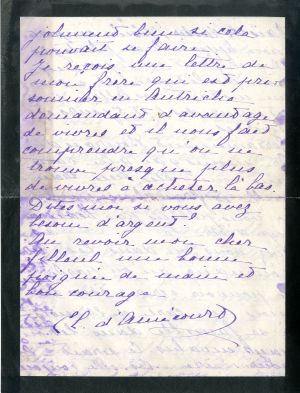 joliment bien si cela
pouvait se faire.
Je reçois une lettre de
mon frère qui est pri-
sonnier en Autriche
demandant d'avantage
de vivres et il nous fait
comprendre qu'on ne
trouve presque plus
de vivres à acheter la bas.
Dites moi si vous avez
besoin d'argent.
Au revoir mon cher
filleul une bonne
poignée de main et
bon courage
d'Amicourt